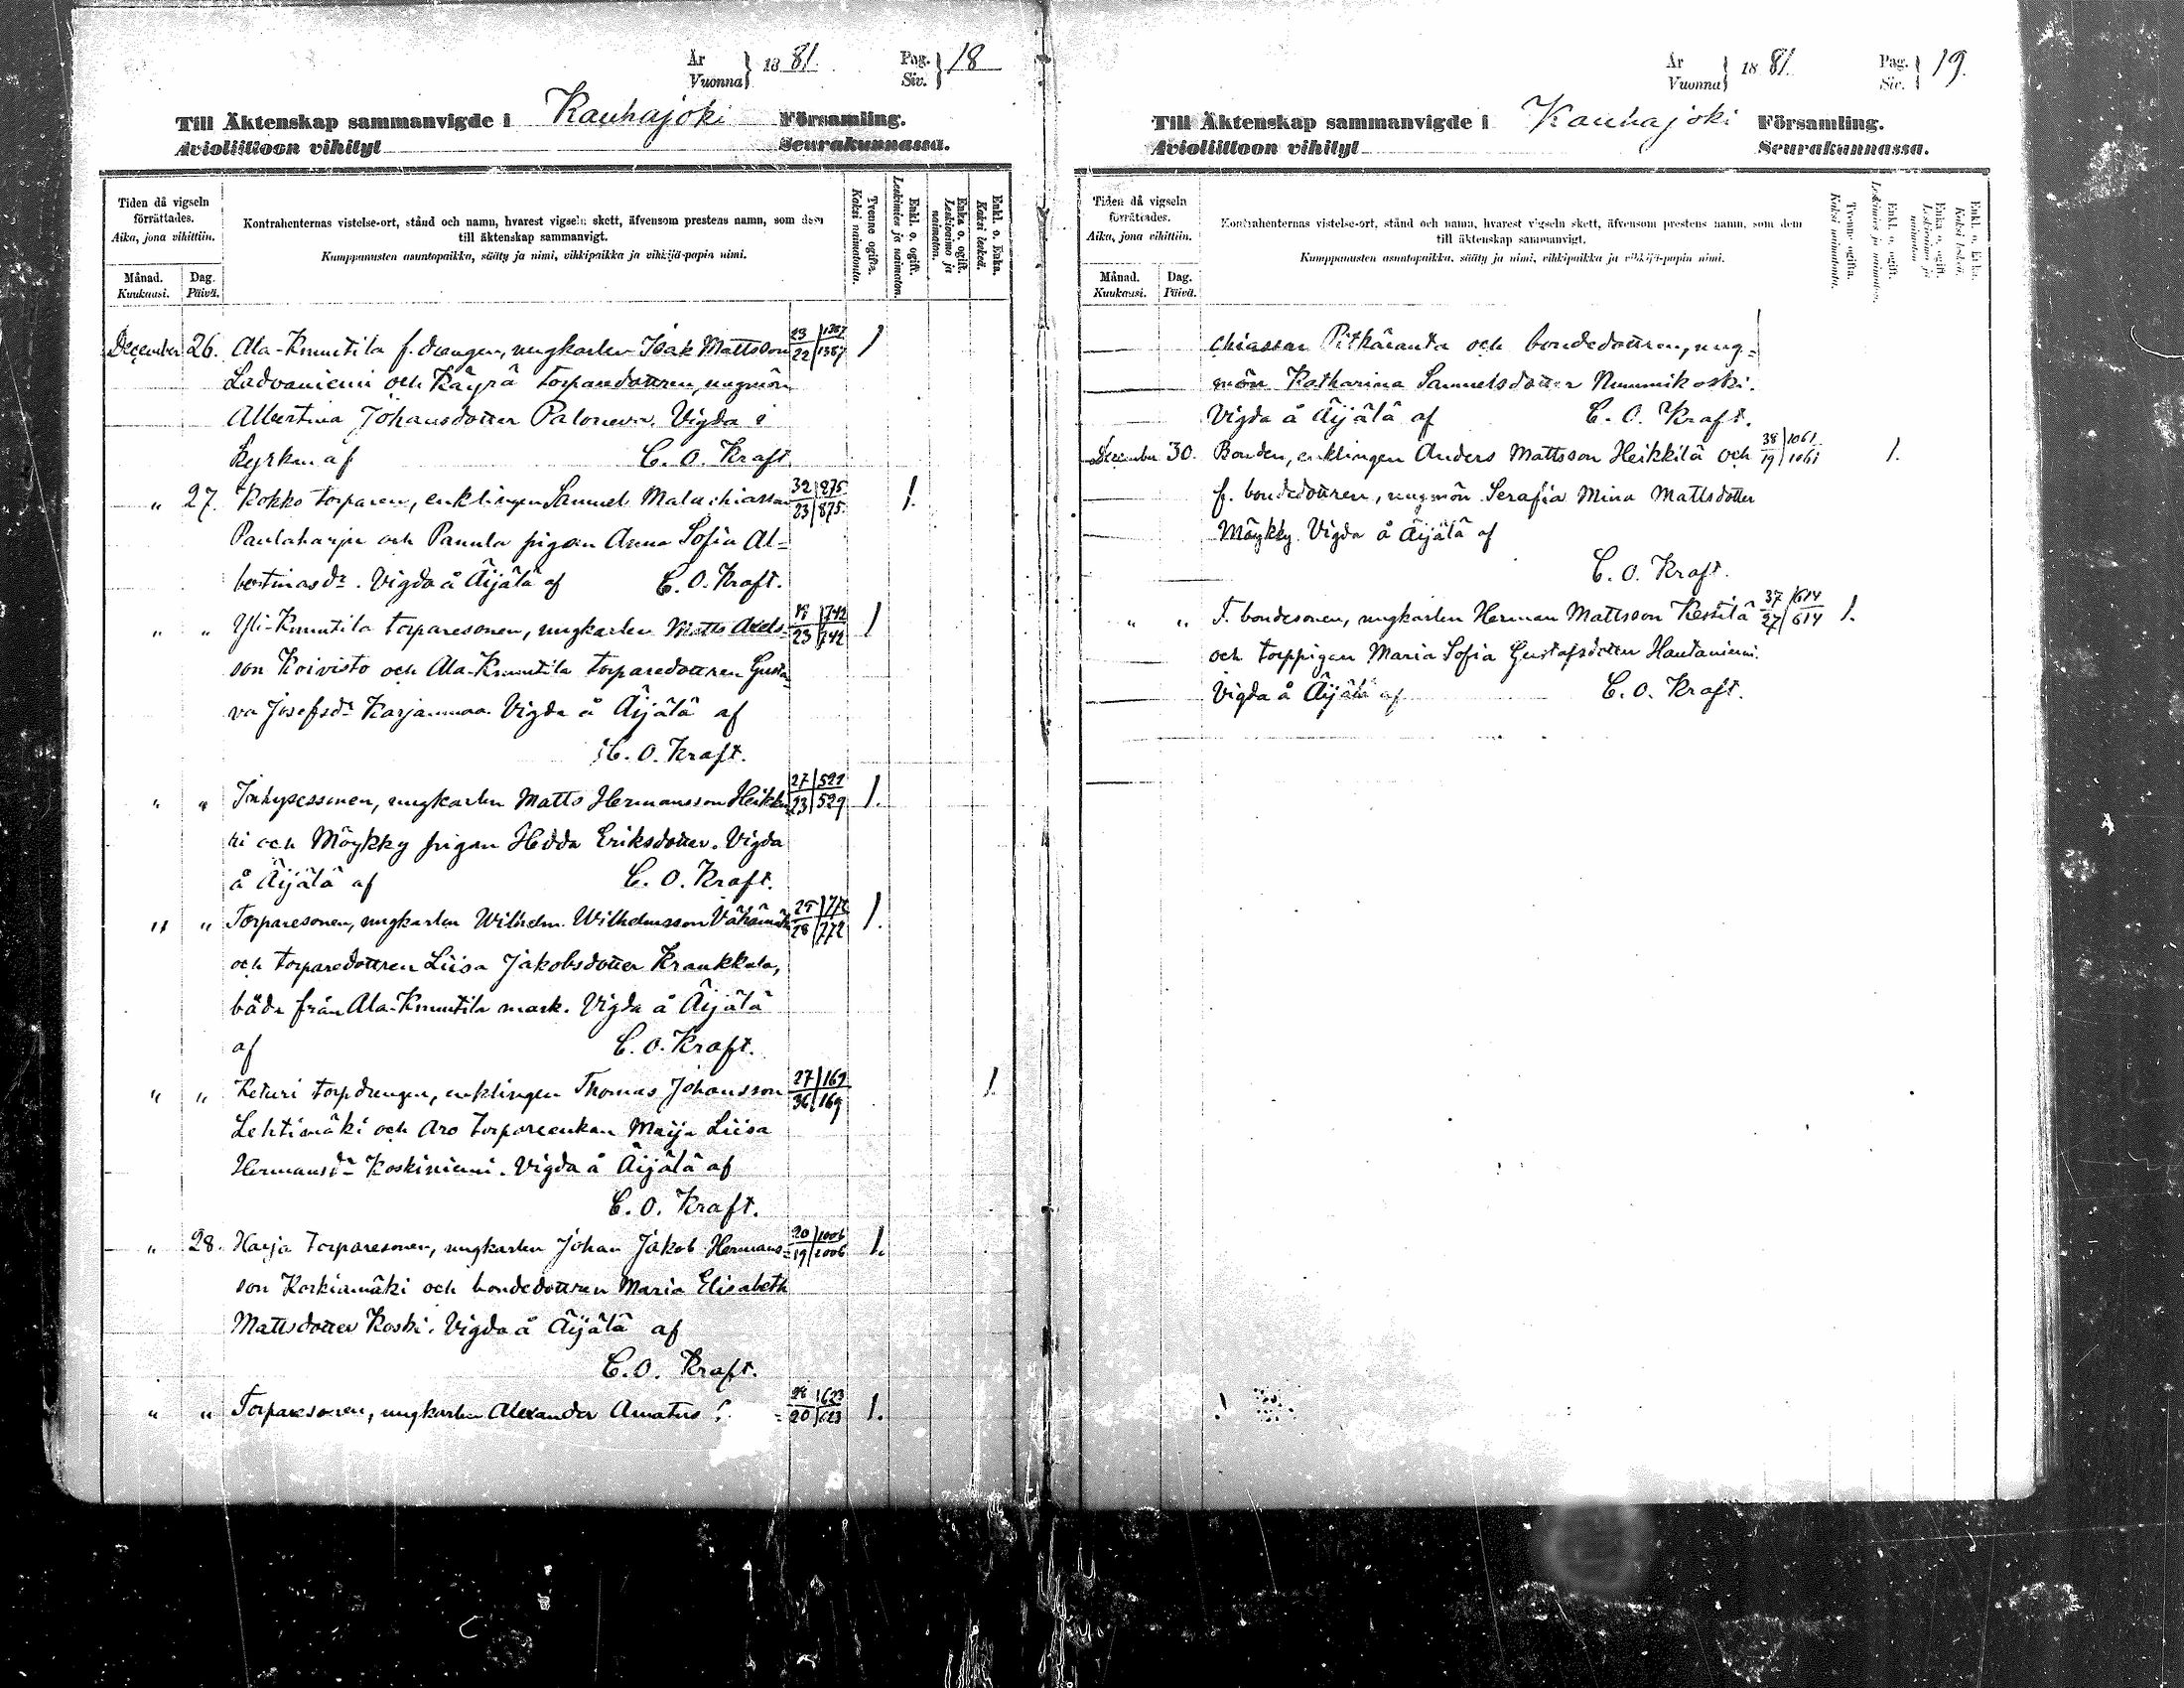 År
Vuonna } 1881. Pag. Siv. } 18
Till Äktenskap sammanvigde i Kauhajoki Församling.
Avioliittoon vihityt Seurakunnassa.
Tiden då vigseln förrättades.
Aika, jona vihittiin.
Månad. Kuukausi.
Dag. Päivä.
Kontrahenternas vistelse-ort, stånd och namn, hvarest vigseln skett, äfvensom prestens namn, som dem
till äktenskap sammanvigt.
Kumppanusten asuntopaikka, sääty ja nimi, vihkipaikka ja vihkijä-papin nimi.
Tvenne ogifta. Kaksi naimatonta.
Enkl. o. ogift. Leskimies ja naimaton.
Enka o. ogift. Leskivaimo ja naimaton.
Enkl. o. Enka. Kaksi leskeä.
December 26. Ala-Knuutila f. drängen, ungkarlen Isak Mattsson 23/22 1387/1387 1
Ladvaniemi och Käyrä torparedottren, ungmön
Albertina Johansdotter Paloneva. Vigda i
kyrkan af C. O. Kraft.
" 27. Kokko torparen, enklingen Samuel Malachiasson 32/23 875/875 1.
Paulaharju och Panula pigan Anna Sofia Al-
bertinasdr. Vigda å Äijälä af C. O. Kraft.
" " Yli-Knuutila torparesonen, ungkarlen Matts Axels- 23 742/742 1
son Koivisto och Ala-Knuutila torparedottren Gusta-
va Josefsdr Karjanmaa. Vigda å Äijälä af
C. O. Kraft.
" " Inhysessonen, ungkarlen Matts Hermansson Heikku- 27/23 529/529 1.
ri och Möykky pigan Hedda Eriksdotter. Vigda
å Äijälä af C. O. Kraft.
" " Torparesonen, ungkarlen Wilhelm Wilhelmsson Vähämäki 772/772 1.
och torparedottren Liisa Jakobsdotter Kraukkala,
båda från Ala-Knuutila mark. Vigda å Äijälä
af C. O. Kraft.
" " Keturi torpdrengen, enklingen Thomas Johansson 27/36 169/169 1.
Lehtimäki och Aro torpareenkan Maija Liisa
Hermansdr Koskiniemi. Vigda å Äijälä af
C. O. Kraft.
" 28. Harja torparesonen, ungkarlen Johan Jakob Hermans- 20/19 1006/1006 1.
son Korkiamäki och bondedottren Maria Elisabeth
Mattsdotter Koski. Vigda å Äijälä af
C. O. Kraft.
" " Torparesonen, ungkarlen Alexander Amatus 20 623/623 1.
År
Vuonna } 1881. Pag. Siv. } 19.
Till Äktenskap sammanvigde i Kauhajoki Församling.
Avioliittoon vihityt Seurakunnassa.
Tiden då vigseln förrättades.
Aika, jona vihittiin.
Månad. Kuukausi.
Dag. Päivä.
Kontrahenternas vistelse-ort, stånd och namn, hvarest vigseln skett, äfvensom prestens namn, som dem
till äktenskap sammanvigt.
Kumppanusten asuntopaikka, sääty ja nimi, vihkipaikka ja vihkijä-papin nimi.
Tvenne ogifta. Kaksi naimatonta.
Enkl. o. ogift. Leskimies ja naimaton.
Enka o. ogift. Leskivaimo ja naimaton.
Enkl. o. Enka. Kaksi leskeä.
chiasson Pitkäranta och bondedottren, ung-
mön Katharina Samuelsdotter Nummikoski.
Vigda å Äijälä af C. O. Kraft.
December 30. Bonden, enklingen Anders Mattsson Heikkilä och 38/19 1061/1061 1.
f. bondedottren, ungmön Serafia Mina Mattsdotter
Möykky. Vigda å Äijälä af
C. O. Kraft.
" " F. bondesonen, ungkarlen Herman Mattsson Keskitä 37/27 614/614 1.
och torppigan Maria Sofia Gustafsdotter Hautaniemi.
Vigda å Äijälä af C. O. Kraft.